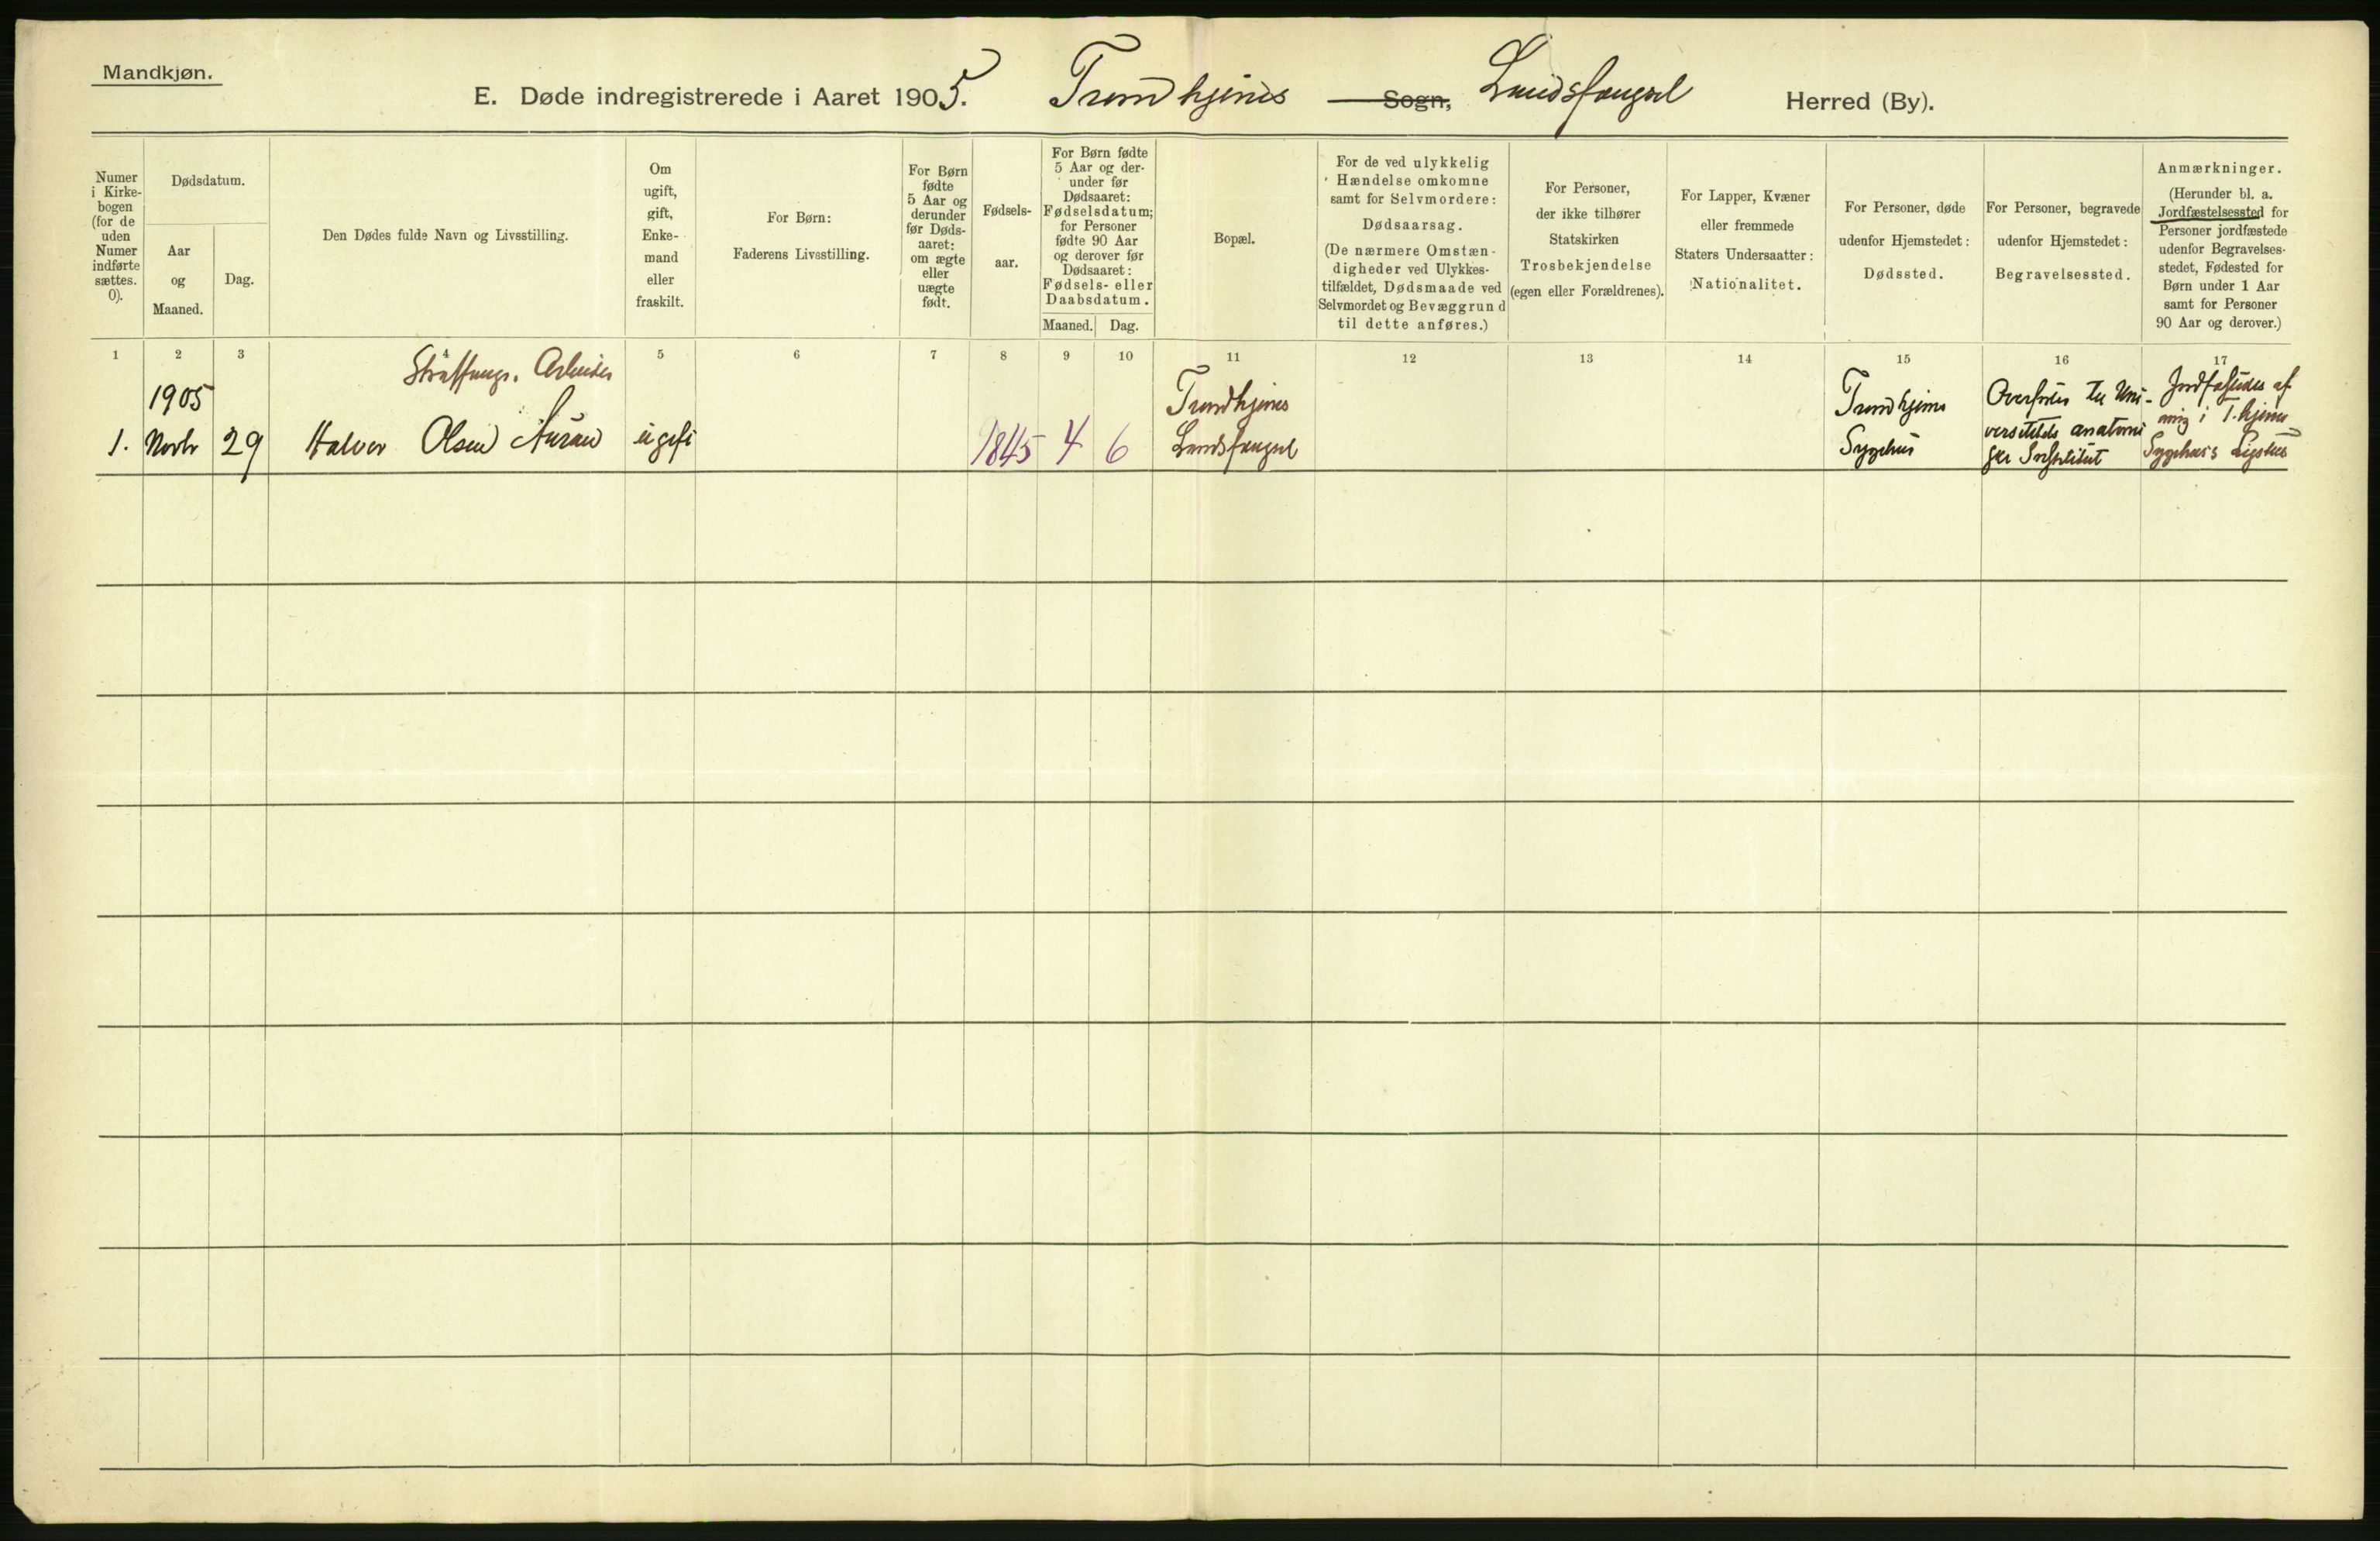 Mandkjøn.
E. Døde indregistrerede i Aaret 1905. Trondhjems Sogn, Landsfængsel Herred (By).
Numer
i Kirke-
bogen
(for de
uden
Numer
indførte
sættes.
0).
Dødsdatum.
Aar
og
Maaned.
Dag.
Den Dødes fulde Navn og Livsstilling.
Om
ugift,
gift,
Enke-
mand
eller
fraskilt.
For Børn:
Faderens Livsstilling.
For Børn
fødte
5 Aar og
derunder
før Døds-
aaret:
om ægte
eller
uægte
født.
Fødsels-
aar.
For Børn fødte
5 Aar og der-
under før
Dødsaaret:
Fødselsdatum;
for Personer
fødte 90 Aar
og derover før
Dødsaaret:
Fødsels- eller
Daabsdatum.
Maaned.
Dag.
Bopæl.
For de ved ulykkelig
Hændelse omkomne
samt for Selvmordere:
Dødsaarsag.
(De nærmere Omstæn-
digheder ved Ulykkes-
tilfældet, Dødsmaade ved
Selvmordet og Bevæggrund
til dette anføres.)
For Personer,
der ikke tilhører
Statskirken
Trosbekjendelse
(egen eller Forældrenes).
For Lapper, Kvæner
eller fremmede
Staters Undersaatter:
Nationalitet.
For Personer, døde
udenfor Hjemstedet:
Dødssted.
For Personer, begravede
udenfor Hjemstedet:
Begravelsessted.
Anmærkninger.
(Herunder bl. a.
Jordfæstelsessted for
Personer jordfæstede
udenfor Begravelses-
stedet, Fødested for
Børn under 1 Aar
samt for Personer
90 Aar og derover.)
1 2 3 4 5 6 7 8 9 10 11 12 13 14 15 16 17
Straffange. Arbeider
1905
1. Novbr 29 Halvor Olsen ugift 1845 4 6
Trondhjems
Landsfængsel
Trondhjems
Sygehus
Overført til Uni-
versitetets anatomi
ske Institut
i T.hjems
Sygehus's Lighus